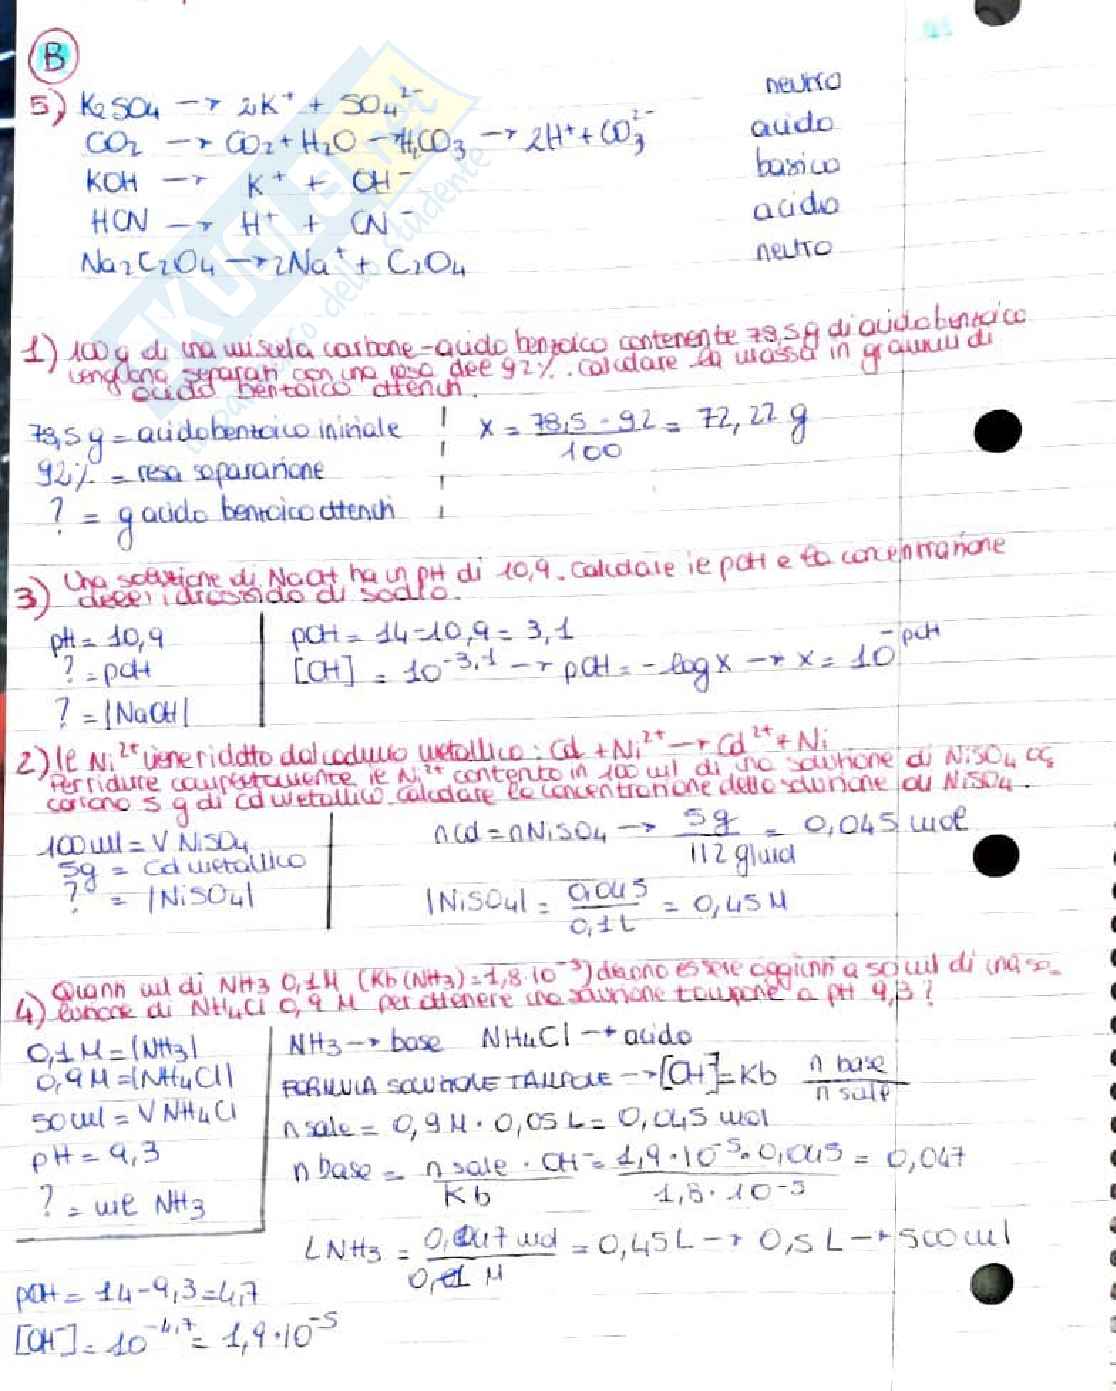 B
5) K2SO4 → 2K+ + SO4 2- neutro
CO2 → CO2 + H2O → H2CO3 → 2H+ + CO3 2- acido
KOH → K+ + OH- basico
HCN → H+ + CN- acido
Na2C2O4 → 2Na+ + C2O4 neutro
1) 100g di una miscela carbone-acido benzoico contenente 78,5g di acido benzoico
vengono separati con una resa del 92%. Calcolare la massa in grammi di
acido benzoico ottenuti.
78,5g = acido benzoico iniziale
92% = resa separazione
? = g acido benzoico ottenuti
x = 78,5 · 92 / 100 = 72,22 g
3) Una soluzione di NaOH ha un pH di 10,9. Calcolare il pOH e la concentrazione
dell'idrossido di sodio.
pH = 10,9
? = pOH
? = |NaOH|
pOH = 14-10,9 = 3,1
[OH] = 10^-3,1 → pOH = -log x → x = 10^-pOH
2) Il Ni2+ viene ridotto dal cadmio metallico: Cd + Ni2+ → Cd2+ + Ni
Per ridurre completamente il Ni2+ contento in 100 ml di una soluzione di NiSO4
5 g di Cd metallico. Calcolare la concentrazione della soluzione di NiSO4.
100ml = V NiSO4
5g = Cd metallico
? = |NiSO4|
nCd = nNiSO4 → 5g / 112 g/mol = 0,045 mol
|NiSO4| = 0,045 / 0,1L = 0,45 M
4) Quanti ml di NH3 0,1M (Kb(NH3) = 1,8·10^-5) devono essere aggiunti a 50 ml di una so-
luzione di NH4Cl 0,9 M per ottenere una soluzione tampone a pH 9,3?
0,1M = |NH3|
0,9M = |NH4Cl|
50ml = V NH4Cl
pH = 9,3
? = ml NH3
NH3 → base NH4Cl → acido
FORMULA SOLUZIONE TAMPONE → [OH-] = Kb n base / n sale
n sale = 0,9M · 0,05 L = 0,045 mol
n base = n sale · OH- / Kb = 1,9·10^-5 · 0,045 / 1,8·10^-5 = 0,047
L NH3 = 0,047 mol / 0,1 M = 0,45L → 0,5L → 500ml
pOH = 14-9,3 = 4,7
[OH-] = 10^-4,7 = 1,9·10^-5